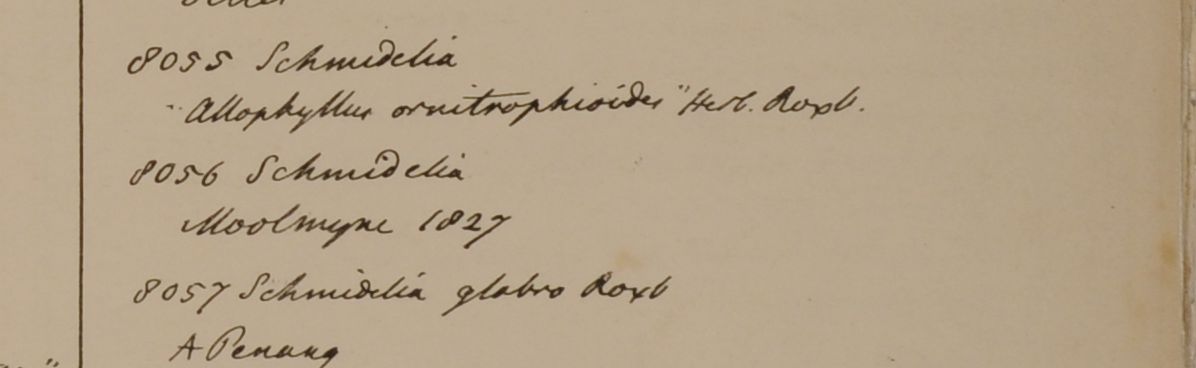 8055 Schmidelia
"Allophyllus ornitrophioides" Herb. Roxb.
8056 Schmidelia
Moolmyne 1827
8057 Schmidelia glabra Roxb
A Penang